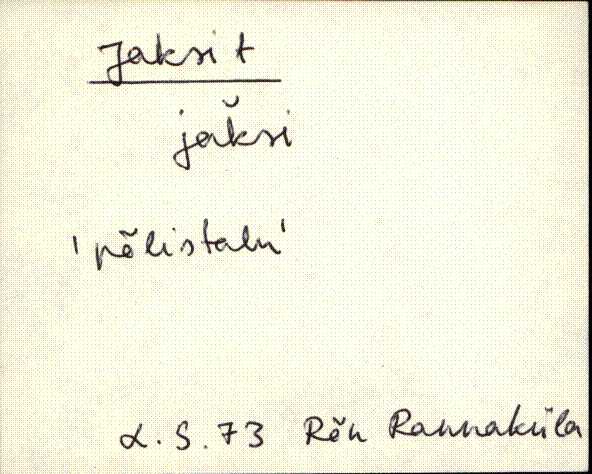 Jaksi t
jak̆si
'põlistalu'
L.S. 73 Rõu Rannaküla